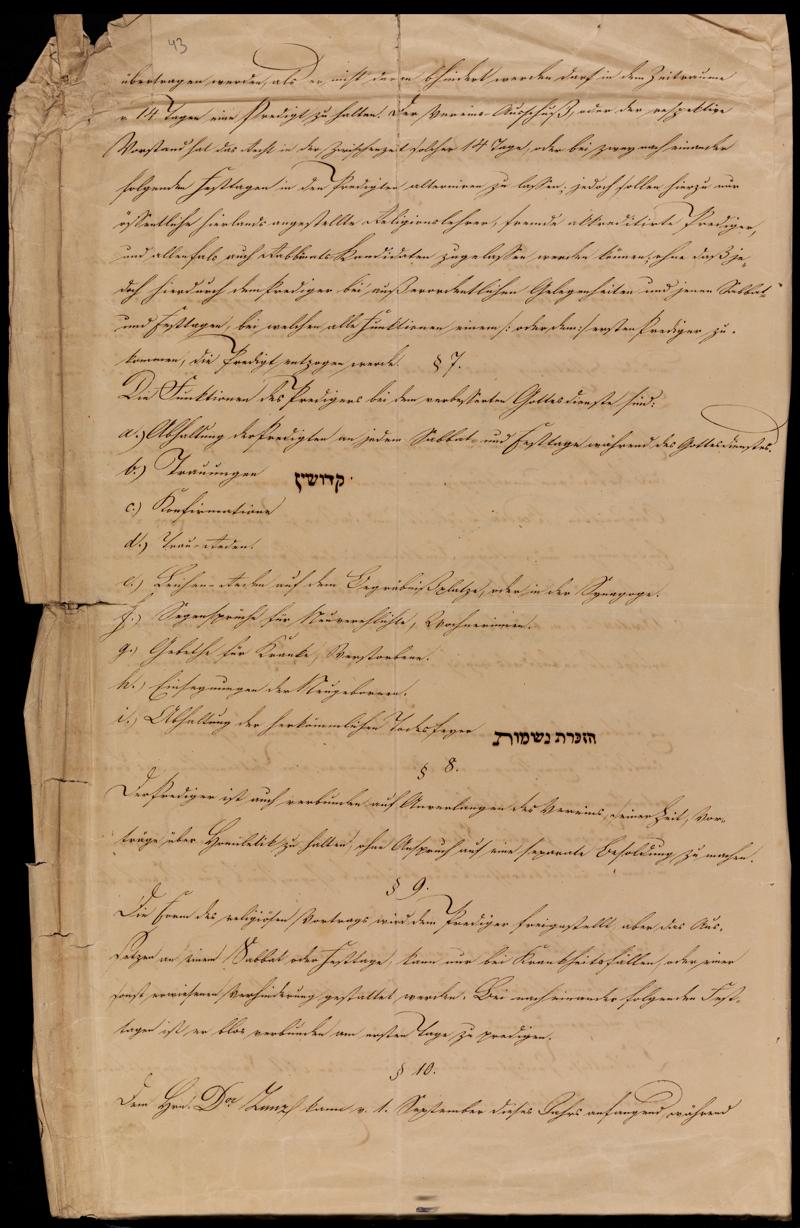 43
übertragen werden, als er nicht darin behindert werden darf in dem Zeitraume
v 14 Tagen eine Predigt zu halten. Der Vereins-Ausschuß, oder der respektive
Vorstand hat das Recht in der Zwischenzeit solcher 14 Tage, oder bei zwey nach einander
folgenden Festtagen in den Predigten alterniren zu lassen; jedoch sollen hierzu nur
öffentliche hierlands angestellte Religionslehrer, fremde akkreditirte Prediger,
und allenfals auch Rabbinats Kandidaten zugelassen werden können, ohne daß je-
doch hierdurch dem Prediger bei außerordentlichen Gelegenheiten und jenen Sabbat-
und Festtagen, bei welchen alle Funktionen einem /: oder dem :/ ersten Prediger zu-
kommen, die Predigt entzogen werde. § 7.
Die Funktionen des Predigers bei dem verbesserten Gottesdienste sind:
a.) Abhaltung der Predigten an jedem Sabbat- und Festtage während des Gottesdienstes.
b.) Trauungen קדושין
c.) Konfirmationen
d.) Trau-Reden.
e.) Leichen-Reden auf dem Begräbnißplatze, oder in der Synagoge.
f.) Segensprüche für Neuverehlichte, Wöchnerinnen.
g.) Gebethe für Kranke, Verstorbene.
h.) Einsegnungen der Neugeborenen.
i.) Abhaltung der herkömmlichen Todesfeyer הזכרת נשמות
§ 8.
Der Prediger ist auch verbunden auf Anverlangen des Vereins, seiner Zeit, Vor-
träge über Homiletik zu halten, ohne Anspruch auf eine separate Besoldung zu machen.
§ 9.
Die Form des religiösen Vortrags wird dem Prediger freigestellt, aber das Aus-
setzen an einem Sabbat oder Festtage, kann nur bei Krankheitsfällen, oder einer
sonst erwiesenen Verhinderung gestattet werden. Bei nacheinander folgenden Fest-
tagen ist er blos verbunden am ersten Tage zu predigen.
§ 10.
Dem Hrn. Dor Zunz kann v. 1. September dieses Jahrs anfangend, während